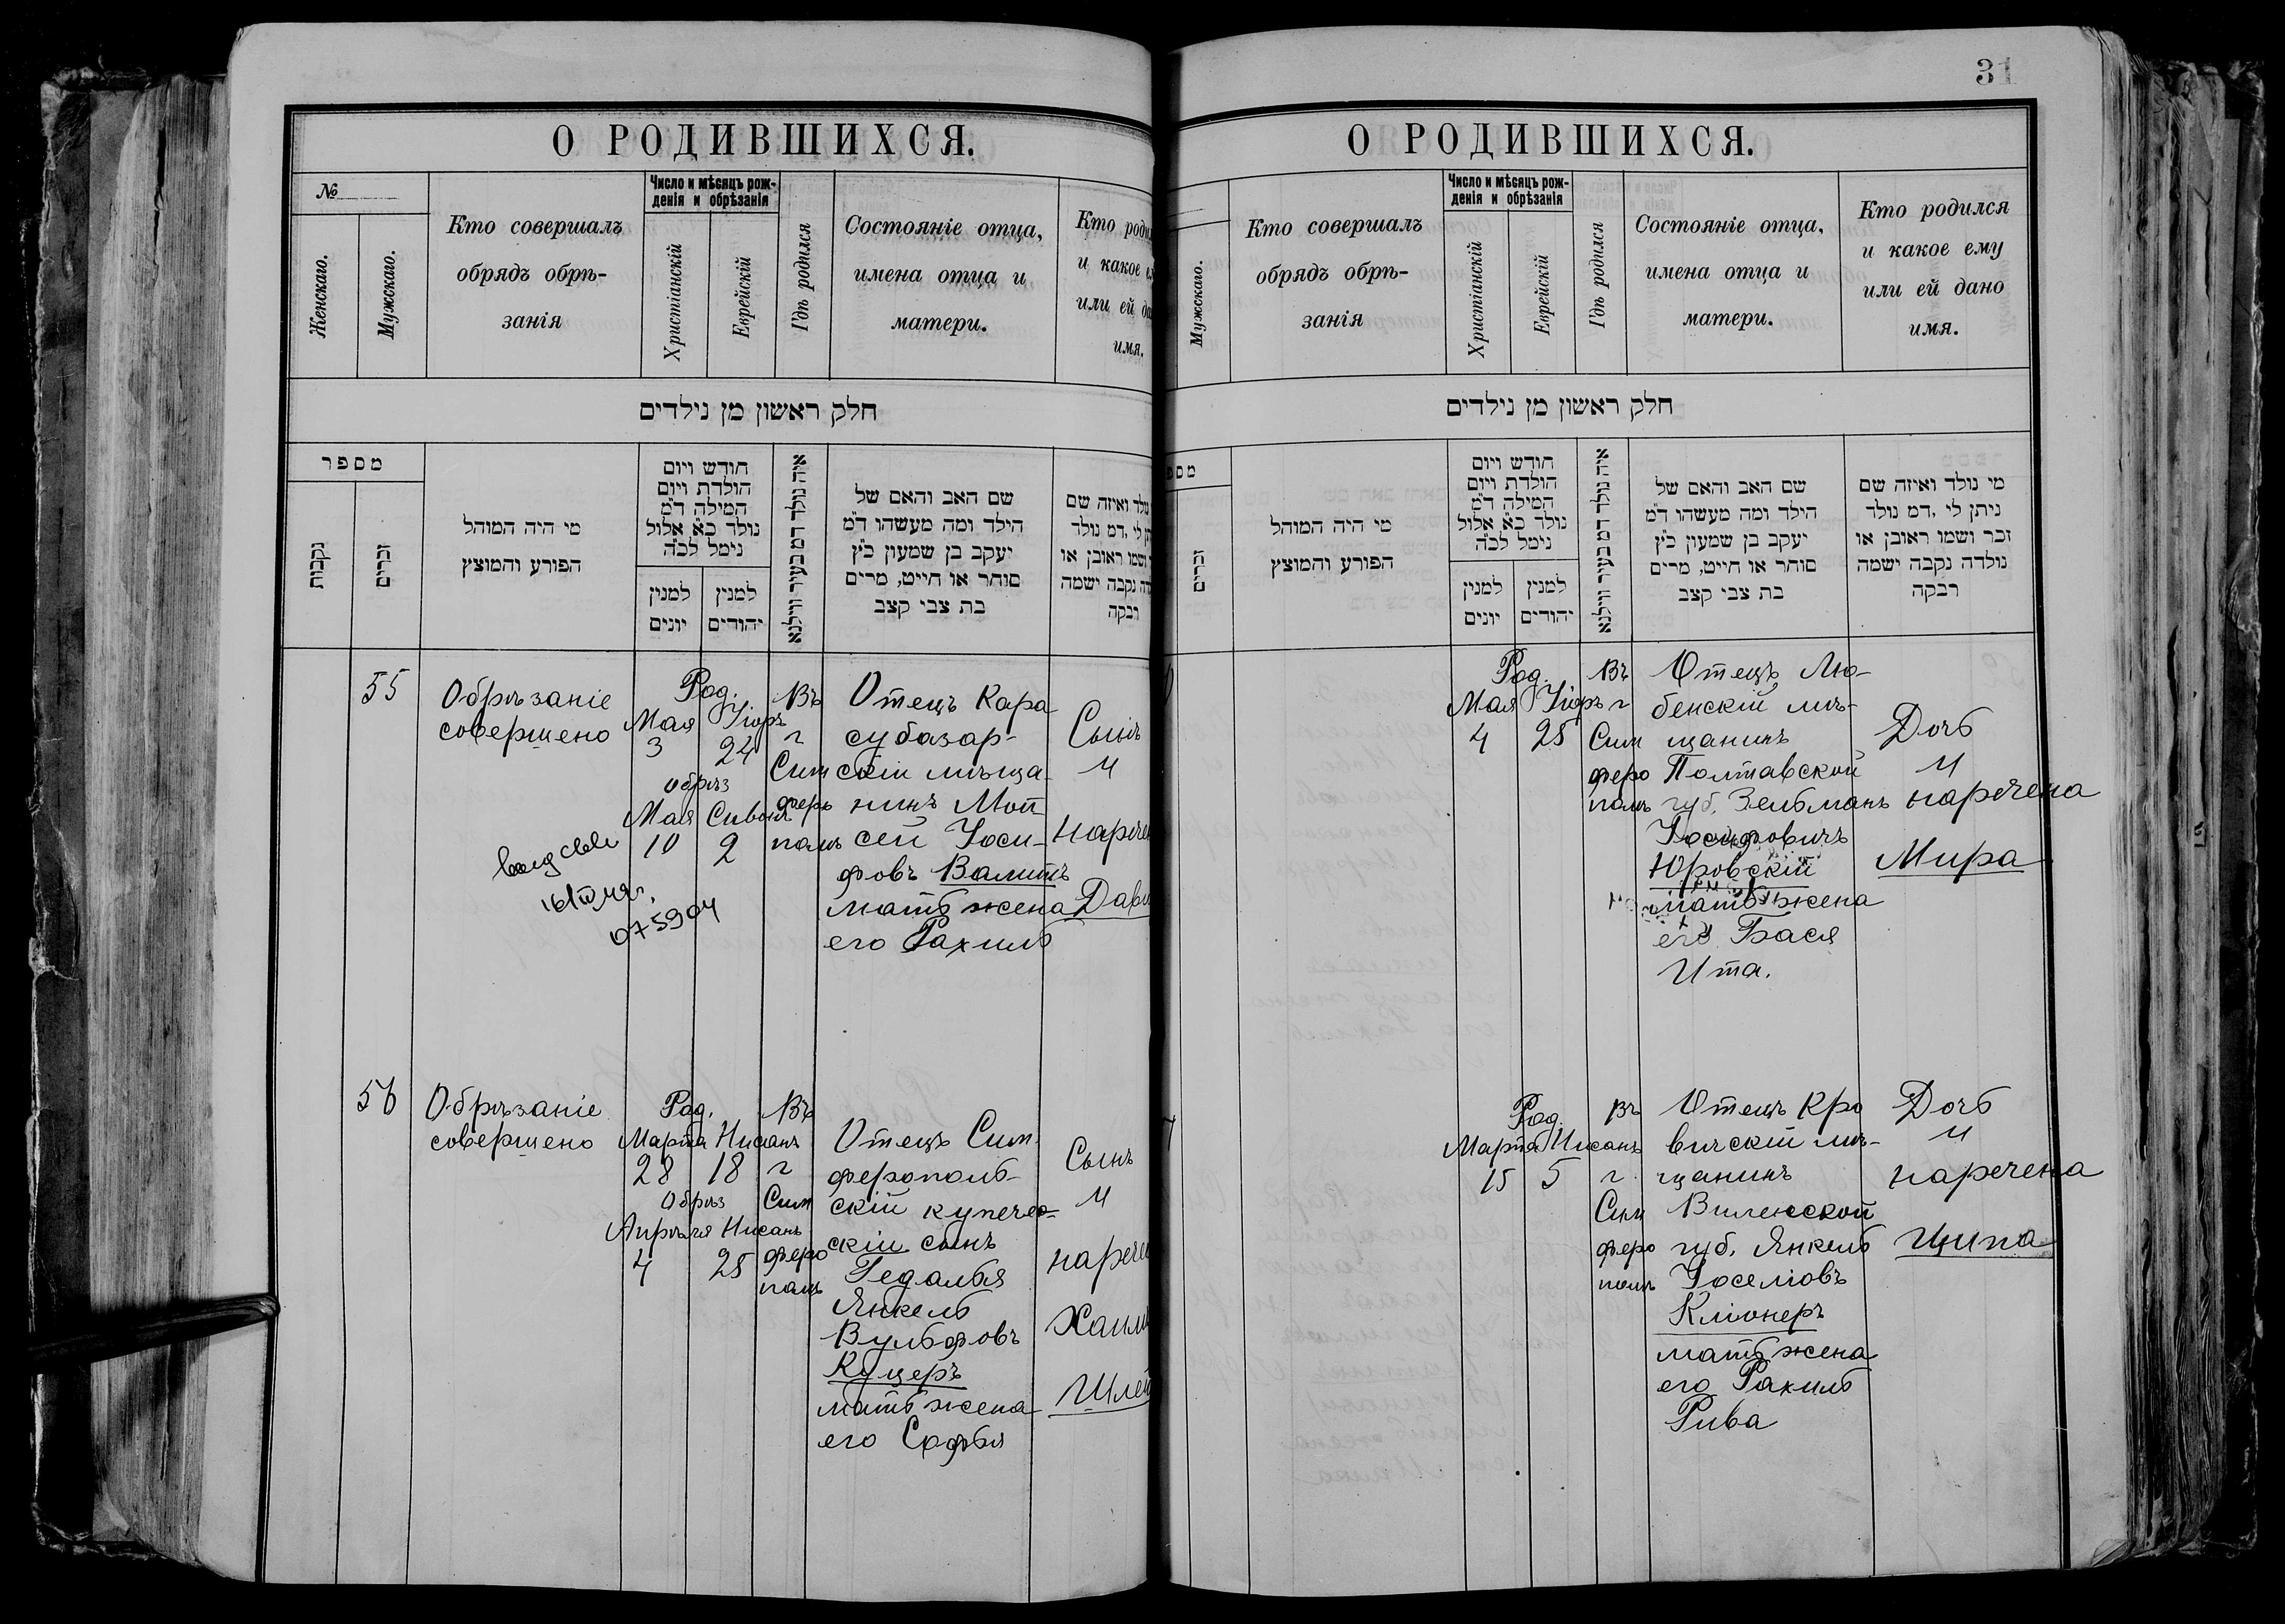 О РОДИВШИХСЯ.
№
Женскаго.
Мужскаго.
Кто совершалъ
обрядъ обрѣ-
занія
Число и мѣсяцъ рож-
денія и обрѣзанія
Христіанскій
Еврейскій
Гдѣ родился
Состояніе отца,
имена отца и
матери.
Кто роди
и какое е
или ей да
имя.
חלק ראשון מן נילדים
מספר
נקבות
זכרים
מי היה המוהל
הפורע והמוצץ
חודש ויום
הולדת ויום
המילה ד״מ
נולד כ״א אלול
נימל לכ״ה
למנין
יונים
למנין
יהודים
איה נולד דמ בעיר ווילנא
שם האב והאם של
הילד ומה מעשהו ד״מ
יעקב בן שמעון כ״ץ
סוחר או חייט, מרים
בת צבי קצב
נולד ואיזה שם
תן לי ,דמ נולד
ושמו ראובן או
דה נקבה ישמה
רבקה
55
Обрѣзаніе
совершено
Род.
Мая Уіоръ
3 24
Обрѣз
Мая Сивонъ
10 2
Въ
г
Сим
феро
полѣ
Отецъ Кара
субазар-
скій мѣща-
нинъ Мои
сей Іоси-
фовъ Валитъ
мать жена
его Рахиль
Сынъ
и
нарече
Дави
075904
56
Обрѣзаніе
совершено
Род.
Марта Нисанъ
28 18
Обрѣз
Апрѣля Нисанъ
4 25
Въ
г
Сим
феро
полѣ
Отецъ Сим-
ферополь-
скій купечес-
скій сынъ
Гедалья
Янкель
Вульфовъ
Куцеръ
мать жена
его Софья
Сынъ
и
нарече
Хаим
Шлей
31
О РОДИВШИХСЯ.
Мужскаго.
Кто совершалъ
обрядъ обрѣ-
занія
Число и мѣсяцъ рож-
денія и обрѣзанія
Христіанскій
Еврейскій
Гдѣ родился
Состояніе отца,
имена отца и
матери.
Кто родился
и какое ему
или ей дано
имя.
חלק ראשון מן נילדים
מספ
זכרים
מי היה המוהל
הפורע והמוצץ
חודש ויום
הולדת ויום
המילה ד״מ
נולד כ״א אלול
נימל לכ״ה
למנין
יונים
למנין
יהודים
איה נולד דמ בעיר ווילנא
שם האב והאם של
הילד ומה מעשהו ד״מ
יעקב בן שמעון כ״ץ
סוחר או חייט, מרים
בת צבי קצב
מי נולד ואיזה שם
ניתן לי ,דמ נולד
זכר ושמו ראובן או
נולדה נקבה ישמה
רבקה
Род.
Мая Уіоръ
4 25
Въ
г
Сим
феро
полѣ
Отецъ Лю-
бенскій мѣ-
щанинъ
Полтавской
губ. Зельманъ
Іосифовичъ
Юровскій
мать жена
его Бася
Ита.
Дочь
и
наречена
Мира
Род.
Марта Нисанъ
15 5
Въ
г.
Сим
феро
полѣ
Отецъ Кро
вичскій мѣ-
щанинъ
Виленской
губ. Янкель
Іоселіовъ
Кліонеръ
мать жена
его Рахиль
Рива
Дочь
и
наречена
Ципа